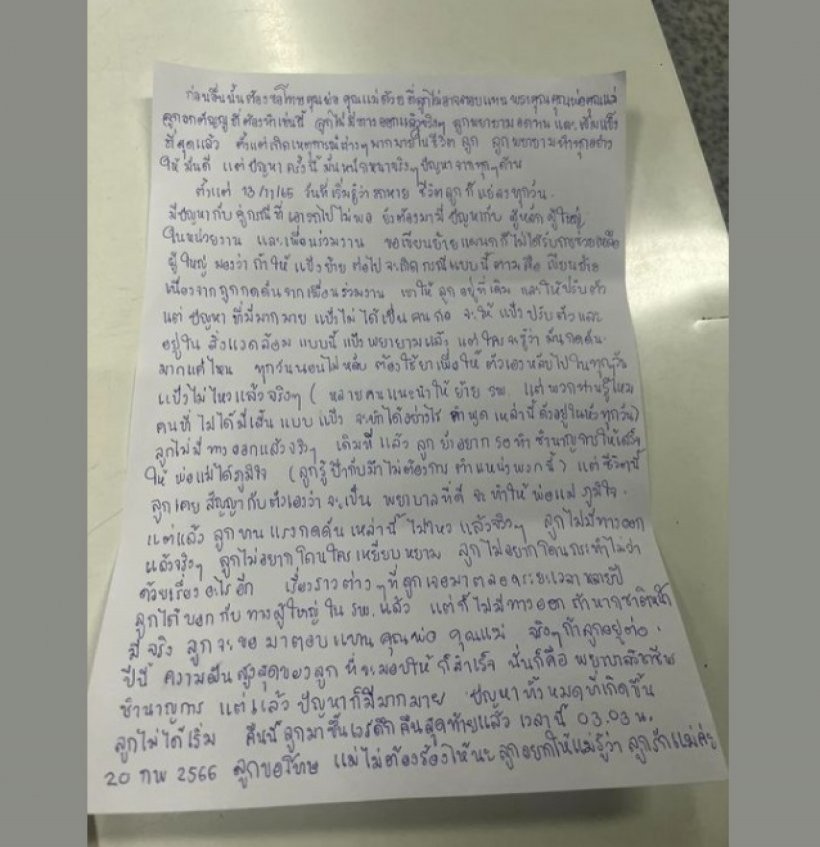 ก่อนอื่นนั้นต้องขอโทษคุณพ่อ คุณแม่ด้วย ที่ลูกไม่อาจตอบแทนพระคุณคุณพ่อคุณแม่
ลูกอกตัญญูที่ต้องทำเช่นนี้ ลูกไม่มีทางออกแล้วจริงๆ ลูกพยายามอดทน และเข้มแข็ง
ที่สุดแล้ว ตั้งแต่เกิดเหตุการณ์ต่างๆมากมายในชีวิต ลูก ลูกพยายามทำทุกอย่าง
ให้ มันดี แต่ปัญหา ครั้งนี้ มันหนักหนาจริงๆ ปัญหาจากทุกๆด้าน
ตั้งแต่ 13/11/65 วันที่เริ่มรู้ว่า รถหาย ชีวิตลูกก็แย่ลงทุกวัน
มีปัญหากับ คู่กรณีที่เอารถไปไม่พอ ยังต้องมามีปัญหากับ ผู้หลักผู้ใหญ่
ในหน่วยงาน และเพื่อนร่วมงาน ขอเขียนย้ายแผนกก็ไม่ได้รับการช่วยเหลือ
ผู้ใหญ่ มองว่า ถ้าให้ แป้งย้าย ต่อไปจะเกิดกรณีแบบนี้ตามคือ เขียนย้าย
เนื่องจากถูกกดดันจากเพื่อนร่วมงาน เขาให้ ลูกอยู่ที่เดิม และให้ปรับตัว
แต่ ปัญหา ที่มีมากมาย แป้งไม่ ได้เป็นคนก่อ จะให้ แป้ง ปรับตัวและ
อยู่ใน สิ่งแวดล้อม แบบนี้ แป้งพยายามแล้ว แต่ใครจะรู้ว่า มันกดดัน
มากแค่ไหน ทุกวันนอนไม่หลับ ต้องใช้ยาเพื่อให้ ตัวเองหลับไปในทุกๆวัน
แป้งไม่ไหวแล้วจริงๆ ( หลายคนแนะนำให้ ย้าย รพ. แต่พวกท่านรู้ไหม
คนที่ ไม่ได้มีเส้น แบบ แป้ง จะทำได้อย่างไร คำพูด เหล่านี้ดังอยู่ในหัวทุกวัน)
ลูกไม่มีทางออกแล้วจริงๆ เดิมที แล้ว ลูก ยังอยาก รอทำ ชำนาญการให้เสร็จ
ให้ พ่อแม่ได้ภูมิใจ (ลูกรู้ป๊ากับม๊าไม่ต้องการ ตำแหน่งพวกนี้) แต่ชีวิตนี้
ลูกเคย สัญญากับตัวเองว่า จะเป็น พยาบาลที่ดี จะ ทำให้ พ่อแม่ ภูมิใจ.
แต่แล้ว ลูกทนแรงกดดันเหล่านี้ ไม่ไหวแล้วจริงๆ ลูกไม่มีทางออก
แล้วจริงๆ ลูกไม่อยากโดนใครเหยียบหยาม ลูกไม่อยากโดนกระทำไม่ว่า
ด้วยเรื่องอะไรอีก เรื่องราวต่างๆที่ลูกเจอมาตลอดระยะเวลาหลายปี
ลูกได้บอกกับทางผู้ใหญ่ ใน รพ. แล้ว แต่ก็ไม่มีทางออก ถ้าหากชาติหน้า
มีจริง ลูกจะขอมาตอบแทน คุณพ่อ คุณแม่ จริงๆถ้าลูกอยู่ต่อ.
ปีนี้ ความฝันสูงสุดของลูก ที่จะมอบให้ ก็สำเร็จ นั่นก็คือ พยาบาลวิชาชีพ
ชำนาญการ แต่แล้ว ปัญหาก็มีมากมาย ปัญหาทั้งหมดที่เกิดขึ้น
ลูกไม่ได้เริ่ม คืนนี้ ลูกมาขึ้นเวรดึกคืนสุดท้ายแล้ว เวลานี้ 03.03 น.
20 กพ 2566 ลูกขอโทษ แม่ไม่ต้องร้องไห้นะ ลูกอยากให้แม่รู้ว่า ลูกรักแม่ค่ะ